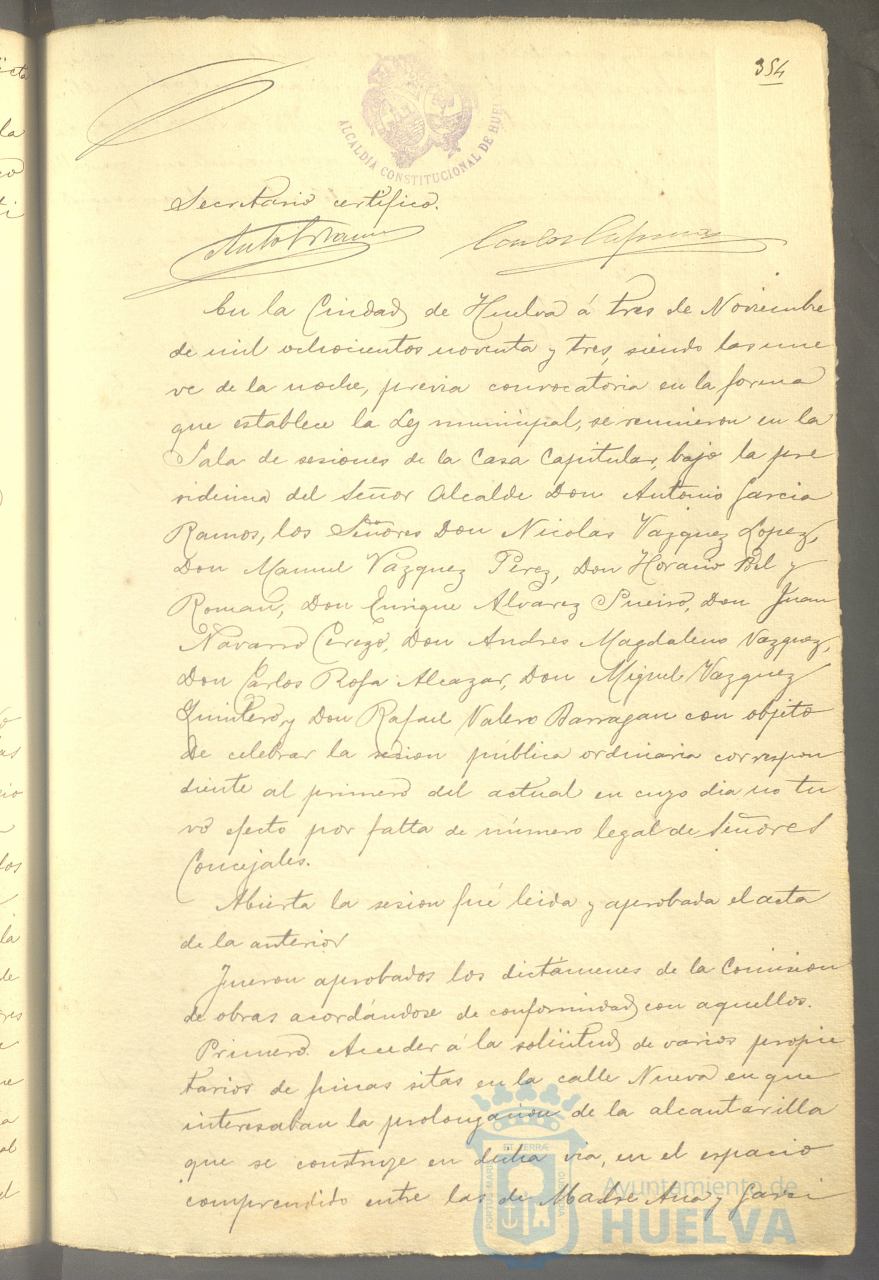 354
ALCALDIA CONSTITUCIONAL DE HUELVA
Secretario certifico.
En la Ciudad de Huelva á tres de Noviembre
de mil ochocientos noventa y tres, siendo las nue
ve de la noche, previa convocatoria en la forma
que establece la Ley municipal, se reunieron en la
Sala de sesiones de la Casa Capitular, bajo la pre
sidencia del Señor Alcalde Don Antonio Garcia
Ramos, los Señores Don Nicolas Vazquez Lopez,
Don Manuel Vazquez Perez, Don Horacio Bel y
Roman, Don Enrique Alvarez Sueiro, Don Juan
Navarro Cerezo, Don Andres Magdaleno Vazquez,
Don Carlos Rofa Alcazar, Don Miguel Vazquez
Quintero, y Don Rafael Valero Barragan con objeto
de celebrar la sesion pública ordinaria correspon
diente al primero del actual en cuyo dia no tu
vo efecto por falta de número legal de Señores
Concejales.
Abierta la sesion fué leida y aprobada el acta
de la anterior
Fueron aprobados los dictámenes de la Comision
de obras acordándose de conformidad con aquellos.
Primero. Acceder á la solicitud de varios propie
tarios de fincas sitas en la calle Nueva en que
interesaban la prolongacion de la alcantarilla
que se construye en dicha via, en el espacio
comprendido entre las de Madre Ana y Garci
Ayuntamiento de
HUELVA